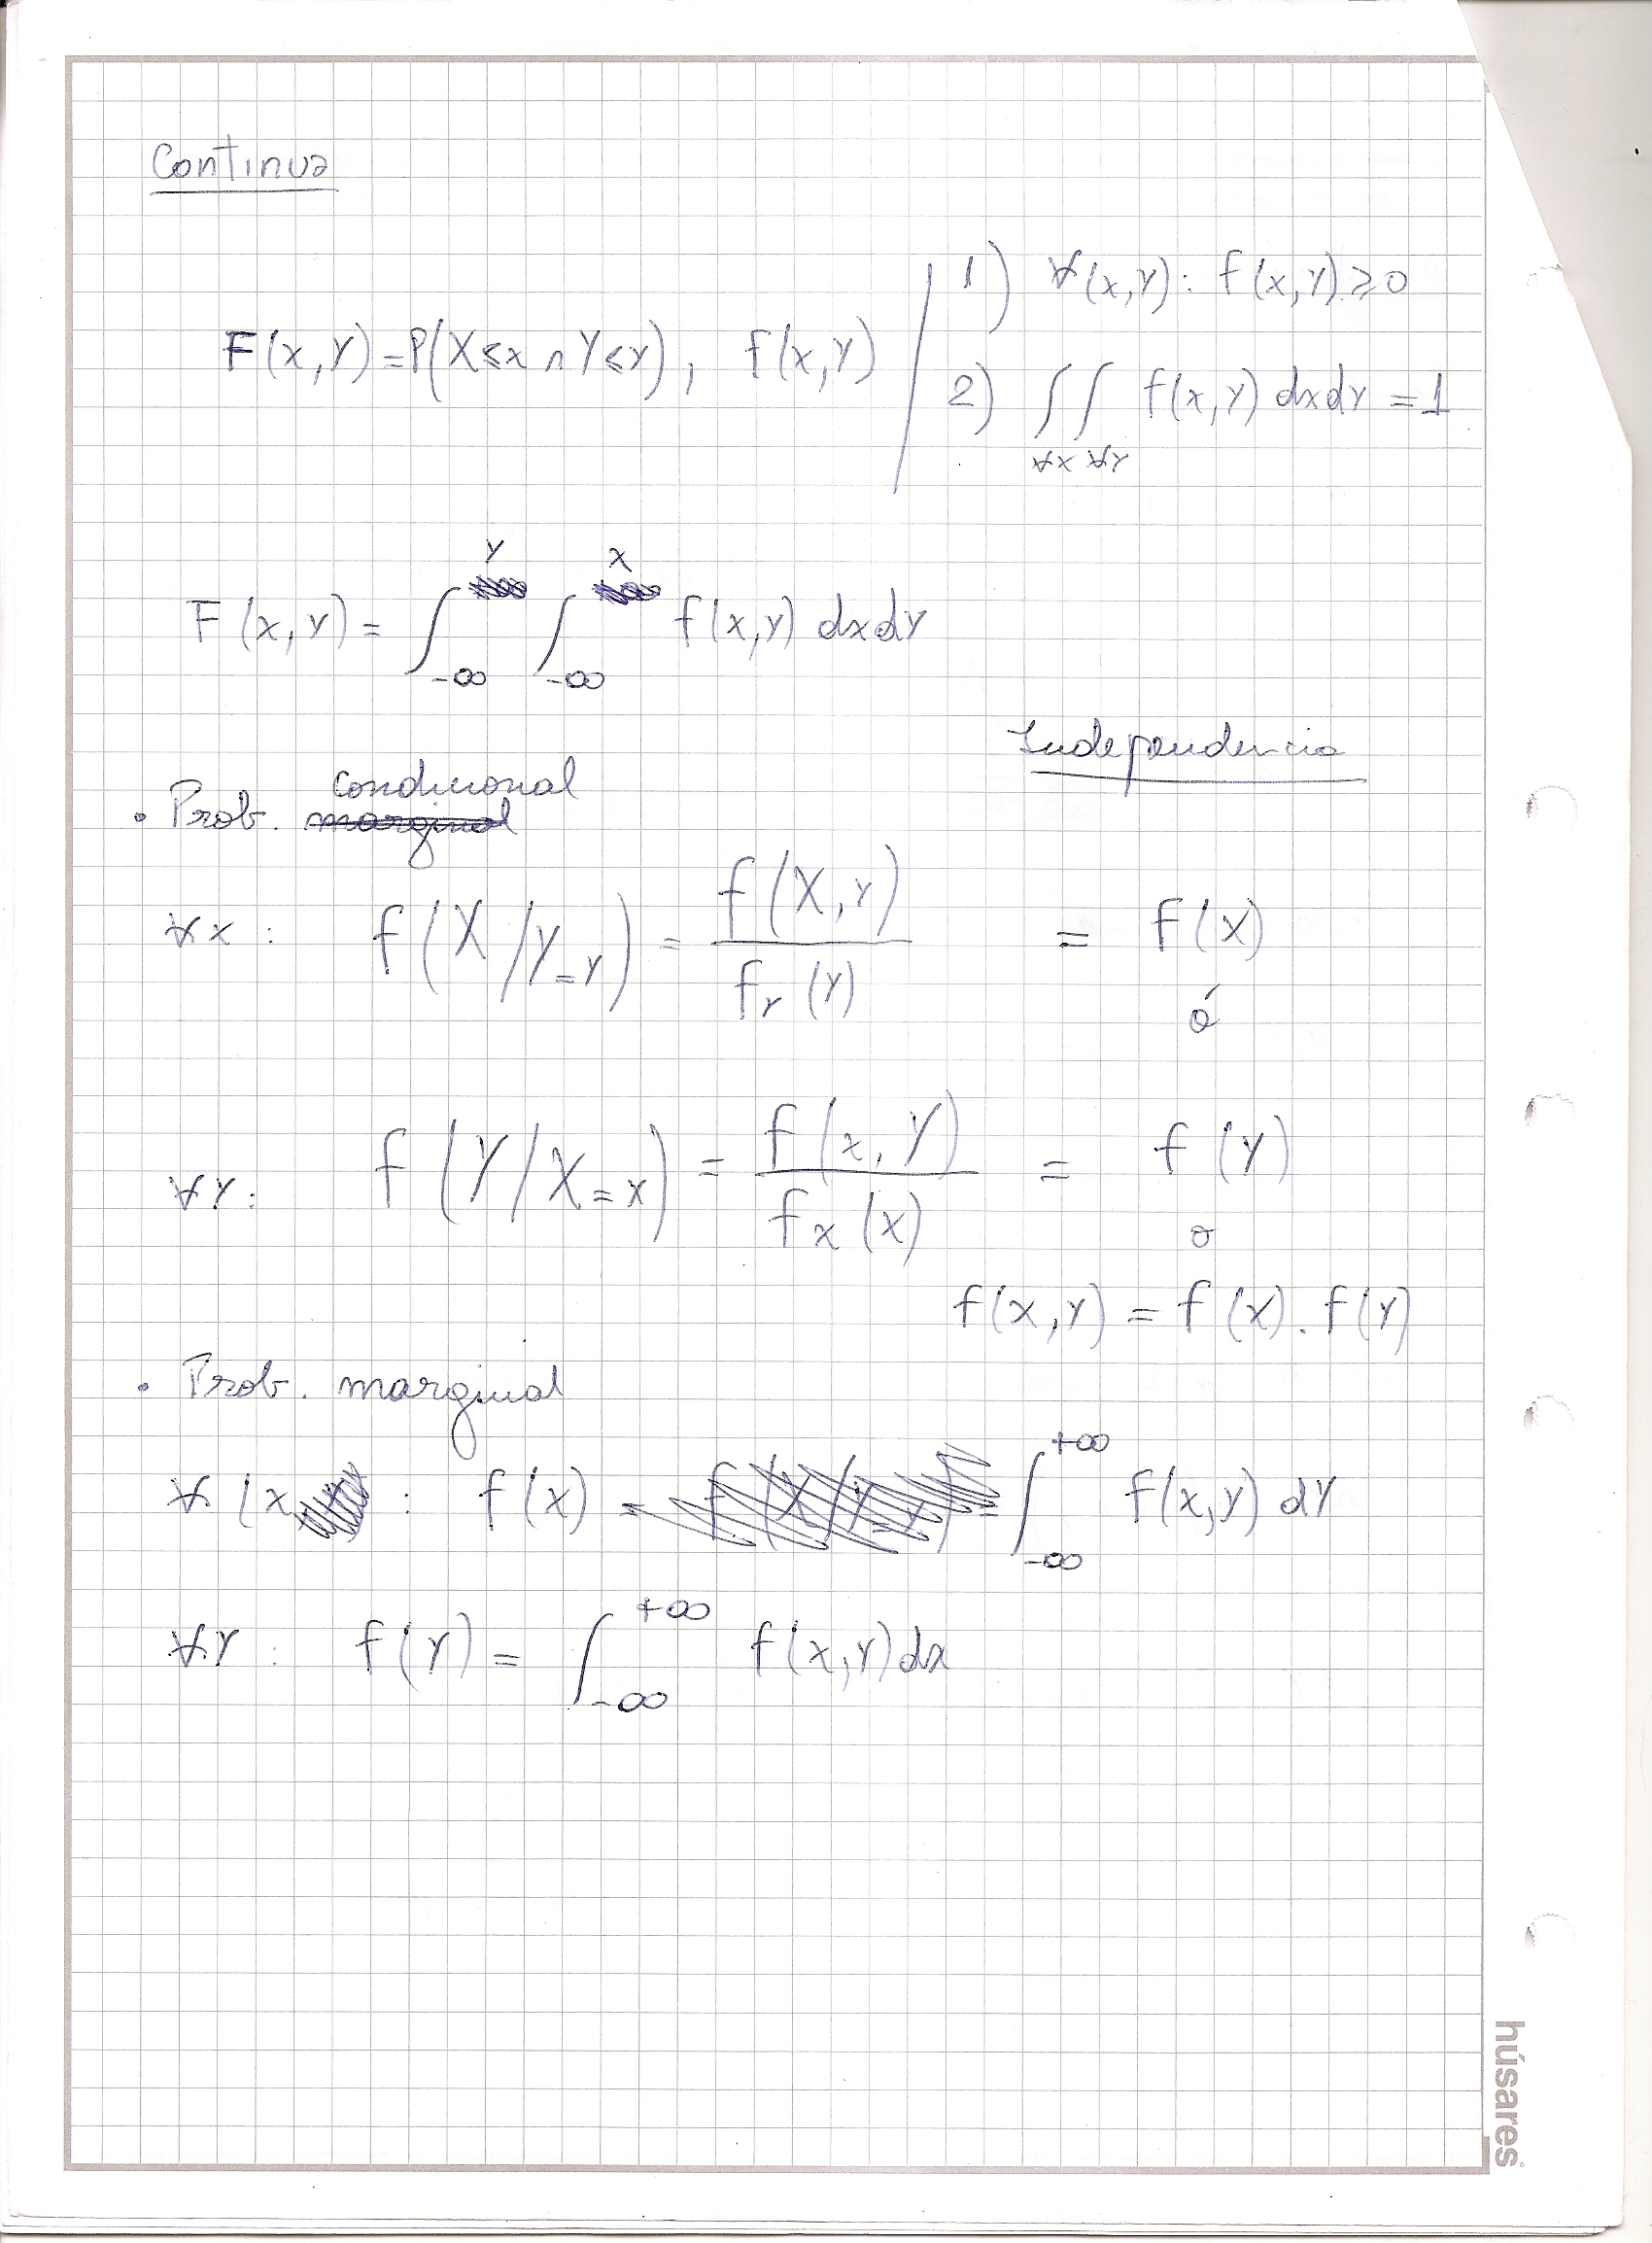 Continua
1) ∀(x,y): f(x,y) ≥ 0
F(x,y) = P(X ≤ x ∩ Y ≤ y), f(x,y) /
2) ∫∫ f(x,y) dxdy = 1
∀x ∀y
F(x,y) = ∫_{-∞}^{y} ∫_{-∞}^{x} f(x,y) dxdy
Independencia
condicional
• Prob. marginal
∀x : f(X/Y=y) = f(X,y) / f_Y(y) = f(x)
ó
∀Y: f(Y/X=x) = f(x,Y) / f_X(x) = f(y)
o
f(x,y) = f(x). f(y)
• Prob. marginal
∀ (x : f(x) = ∫_{-∞}^{+∞} f(x,y) dy
∀Y : f(y) = ∫_{-∞}^{+∞} f(x,y) dx
húsares